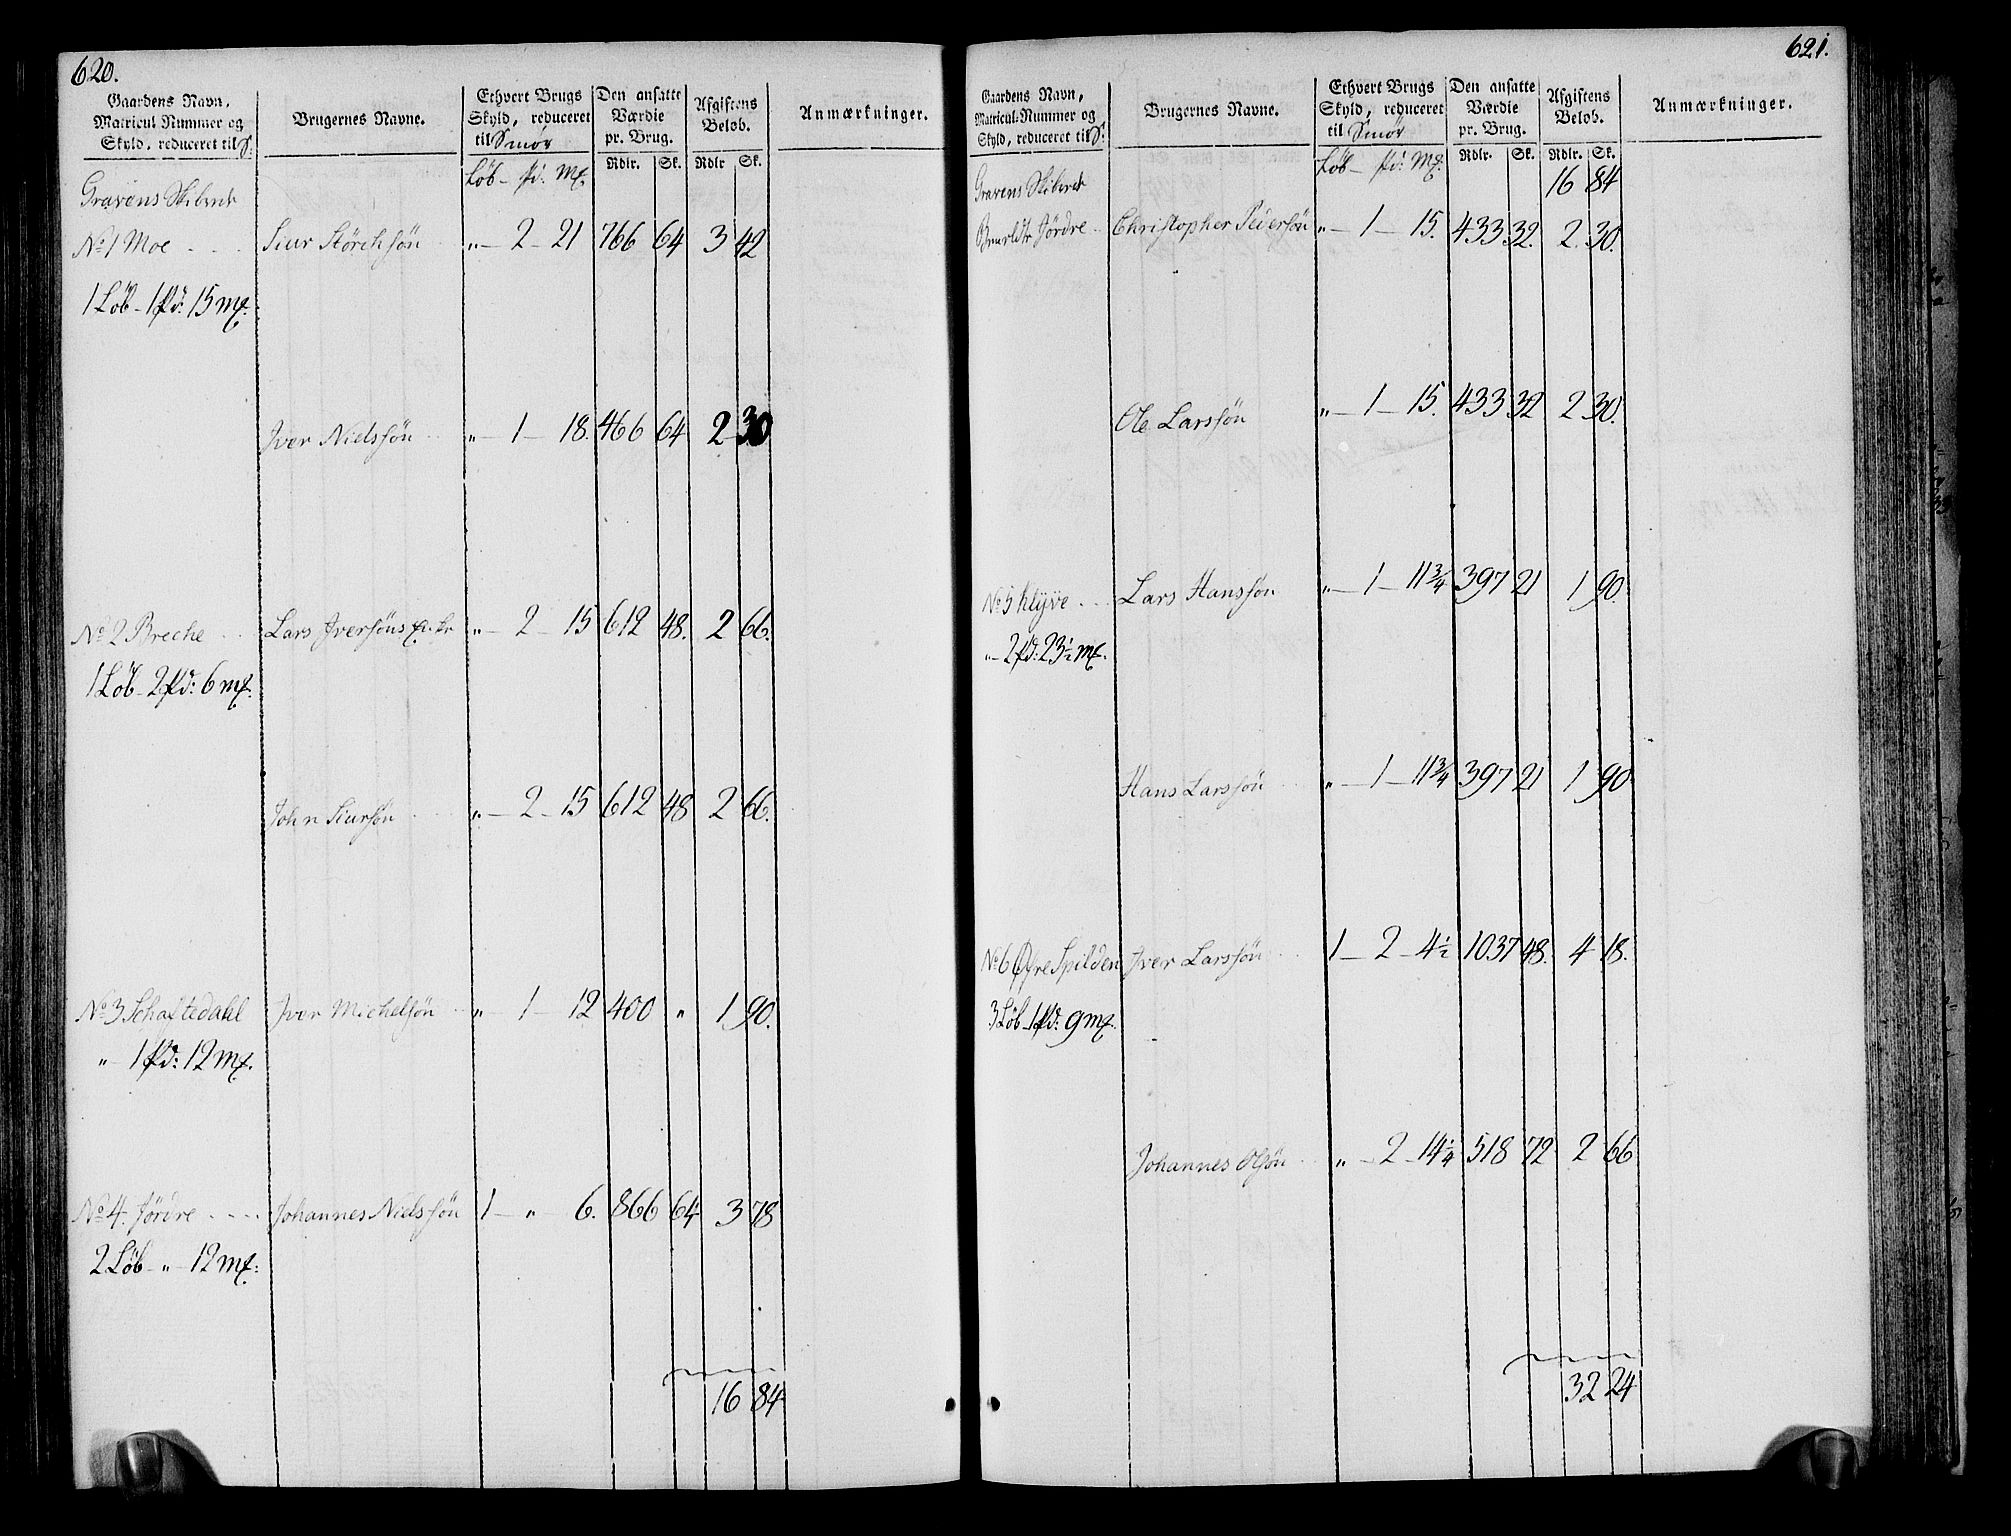 620.
Gaardens Navn, Matricul-Nummer og Skyld, reduceret til S. | Brugernes Navne. | Ethvert Brugs Skyld, reduceret til Smør | Den ansatte Værdie pr. Brug. | Afgiftens Beløb. | Anmærkninger.
Løb – Pd: Mk. | Rdlr. | Sk. | Rdlr | Sk.
Gravens Skibrede
No 1 Moe | Siur Störchsön | „ – 2 – 21 | 766 | 64 | 3 | 42
1 Løb – 1 Pd: 15 mk.
Iver Nielssön | „ – 1 – 18. | 466 | 64 | 2 | 30
No 2 Breche | Lars Iversöns | „ – 2 – 15 | 612 | 48. | 2 | 66.
1 Løb – 2 Pd: 6 mk.
John Siursön | „ – 2 – 15 | 612 | 48 | 2 | 66.
No 3 Schaftedahl | Iver Michelsön | „ – 1 – 12 | 400 | „ | 1 | 90.
„ – 1 Pd: 12 mk.
No 4. Jördre | Johannes Nielssön | 1 – „ – 6. | 866 | 64 | 3 | 78
2 Løb – „ – 12 mk:
16 | 84
621.
Gaardens Navn, Matricul-Nummer og Skyld, reduceret til S. | Brugernes Navne. | Ethvert Brugs Skyld, reduceret til Smør | Den ansatte Værdie pr. Brug. | Afgiftens Beløb. | Anmærkninger.
Løb – Pd: Mk. | Rdlr. | Sk. | Rdlr. | Sk.
Gravens Skibrede | 16 | 84
Jördre | Christopher Pedersön | „ – 1 – 15. | 433 | 32. | 2. | 30.
Ole Larssön | „ – 1 – 15. | 433 | 32 | 2 | 30.
No 5 Klyve | Lars Hanssön | „ – 1 – 11 3/4 | 397 | 21 | 1 | 90.
„ – 2 Pd: 23 1/2 mk.
Hans Larssön | „ – 1 – 11 3/4 | 397 | 21 | 1 | 90
No 6 Øfre Spilden | Iver Larssön | 1 – 2 – 4 1/2 | 1037 | 48. | 4 | 18.
3 Løb – 1 Pd: 9 mk.
Johannes Olsön | „ – 2 – 14 1/4 | 518 | 72 | 2 | 66
32 | 24